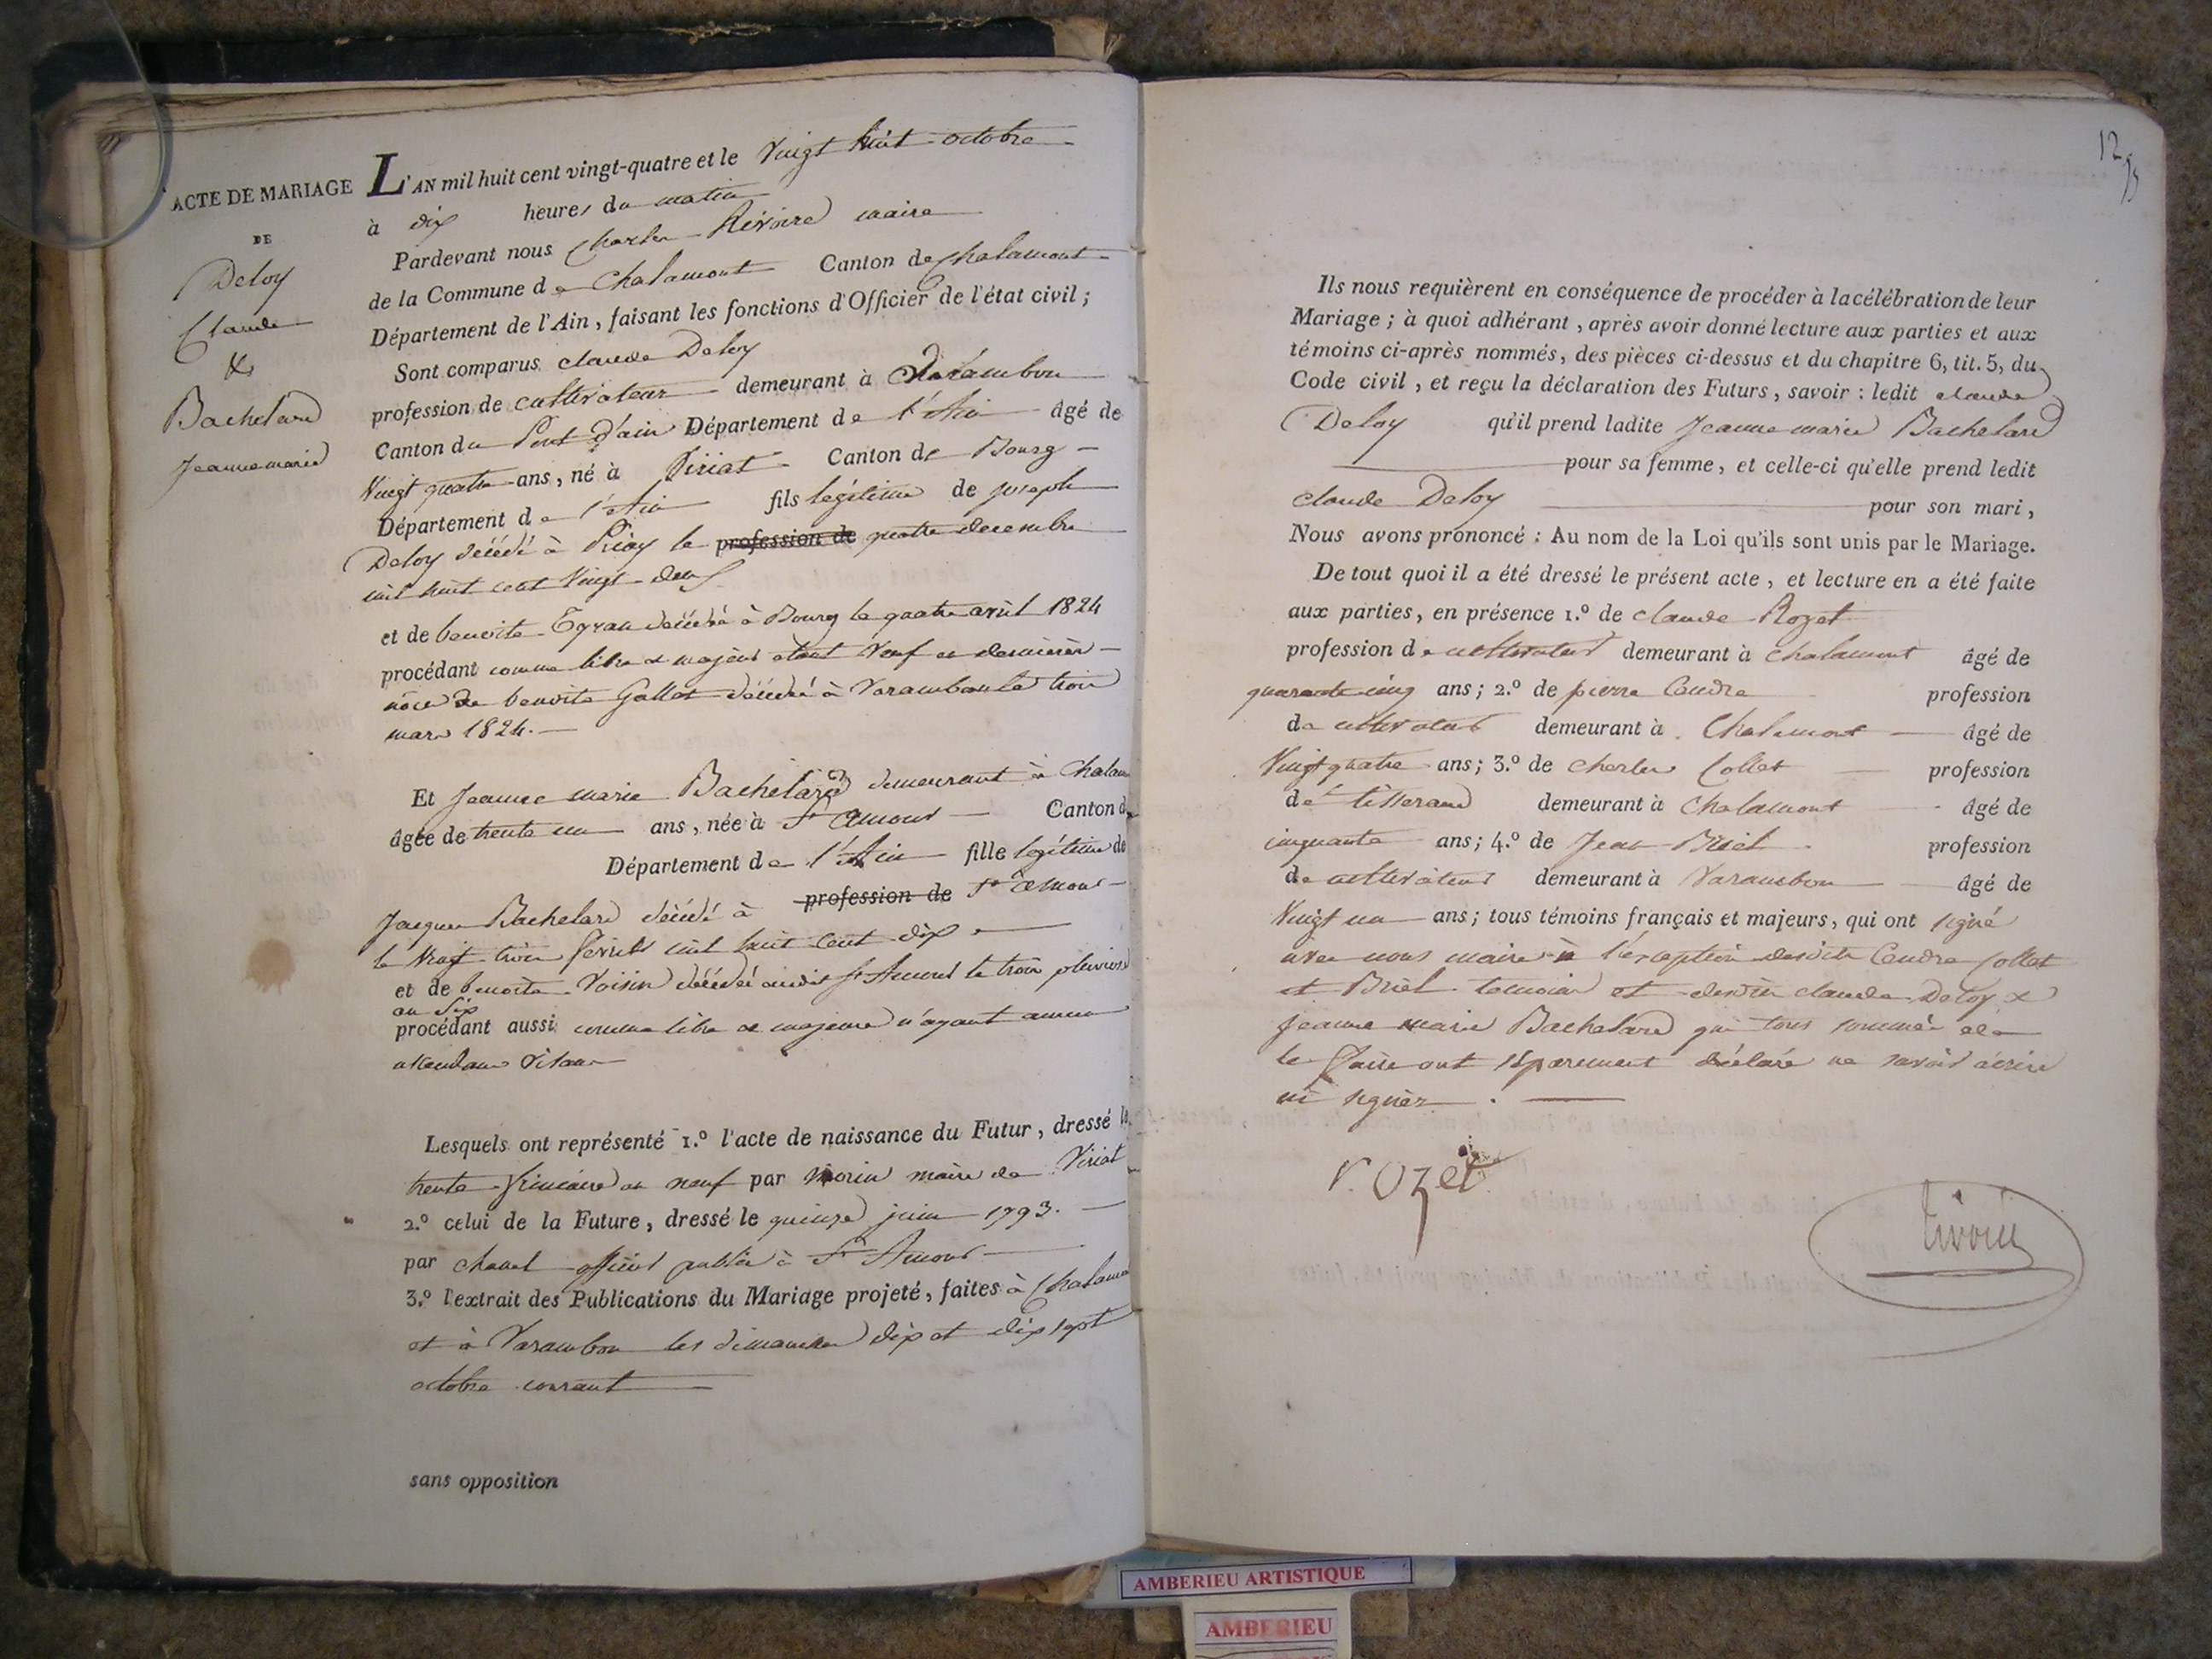 ACTE DE MARIAGE
DE
Deloy
Claude
&
Bachelard
Jeanne marie
L'AN mil huit cent vingt-quatre et le Vingt huit octobre
à dix heures du matin
Pardevant nous Charles Rivoire maire
de la Commune de Chalamont Canton de Chalamont
Département de l'Ain, faisant les fonctions d'Officier de l'état civil ;
Sont comparus claude Deloy
profession de cultivateur demeurant à Varambon
Canton du Pont d'ain Département de l'Ain âgé de
Vingt quatre ans, né à Viriat Canton de Bourg
Département de l'Ain fils légitime de joseph
Deloy décédé à Priay le profession de quatre decembre
mil huit cent Vingt deux
et de benoite décédée à Bourg le quatre avril 1824
procédant comme libre & majeur étant Veuf en dernières
nôce de benoite Gallet décédée à Varambon le trois
mars 1824.
Et Jeanne marie Bachelard demeurant à Chalam
âgée de trente un ans, née à St Amour Canton d
Département de l'Ain fille légitime de
Jacques Bachelard décédé à profession de St Amour
le Vingt trois fevrier mil huit cent dix
et de benoite Voisin décédée audit St Amour le trois pluviose
an Six
procédant aussi comme libre & majeure n'ayant aucun
ascendans Vivans
Lesquels ont représenté 1.º l'acte de naissance du Futur, dressé le
trente frimaire an neuf par Morin maire de Viriat
2.º celui de la Future, dressé le quinze juin 1793.
par officier public à St Amour
3.º l'extrait des Publications du Mariage projeté, faites à Chalamo
et à Varambon les dimanches dix et dix sept
octobre courant
sans opposition
12
Ils nous requièrent en conséquence de procéder à la célébration de leur
Mariage ; à quoi adhérant, après avoir donné lecture aux parties et aux
témoins ci-après nommés, des pièces ci-dessus et du chapitre 6, tit. 5, du
Code civil, et reçu la déclaration des Futurs, savoir : ledit claude
Deloy qu'il prend ladite Jeanne marie Bachelard
pour sa femme, et celle-ci qu'elle prend ledit
claude Deloy pour son mari,
Nous avons prononcé : Au nom de la Loi qu'ils sont unis par le Mariage.
De tout quoi il a été dressé le présent acte, et lecture en a été faite
aux parties, en présence 1.º de claude Rozet
profession de cultivateur demeurant à chalamont âgé de
quarante cinq ans; 2.º de pierre Coudre profession
de cultivateur demeurant à Chalamont âgé de
Vingt quatre ans; 3.º de Charles Collet profession
de tisserand demeurant à Chalamont âgé de
cinquante ans; 4.º de Jean Briel profession
de cultivateur demeurant à Varambon âgé de
Vingt un ans; tous témoins français et majeurs, qui ont signé
avec nous maire à l'exception desdits Coudre Collet
et Briel temoins et desdits claude Deloy &
Jeanne marie Bachelard qui tous sommés de
le faire ont séparement déclaré ne savoir écrire
ni signer.
rozet
rivoire
AMBERIEU ARTISTIQUE
AMBERIEU